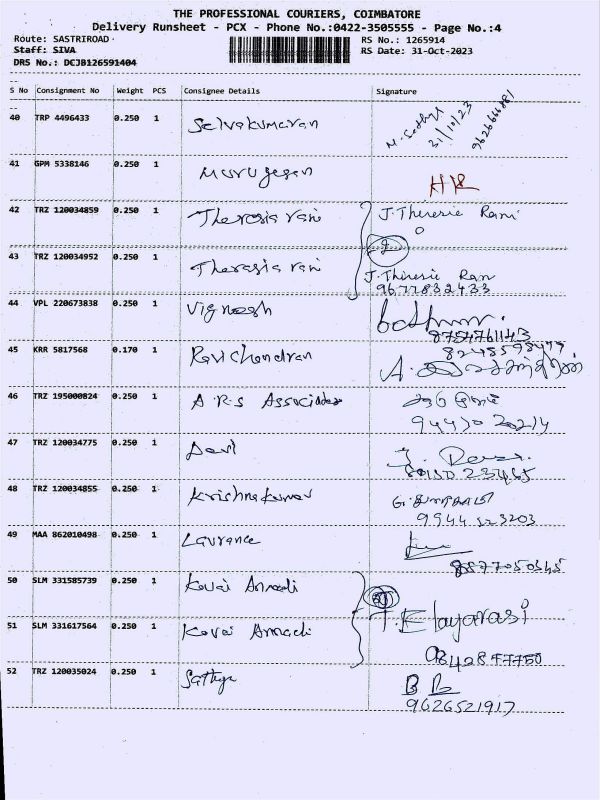 THE PROFESSIONAL COURIERS, COIMBATORE
Delivery Runsheet - PCX - Phone No.:0422-3505555 - Page No.:4
Route: SASTRIROAD RS No.: 1265914
Staff: SIVA RS Date: 31-Oct-2023
DRS No.: DCJB126591404
S No Consignment No Weight PCS Consignee Details Signature
40 TRP 4496433 0.250 1 Selvakumaran M. Sathya 31/10/23
41 GPM 5338146 0.250 1 Murugesan
42 TRZ 120034859 0.250 1 Theresia rani J. Theresie Rani
43 TRZ 120034952 0.250 1 Therasia rani J. Thiresie Ran
9677832433
44 VPL 220673838 0.250 1 Vignesh
8754761143
45 KRR 5817568 0.170 1 Ravichandran
46 TRZ 195000824 0.250 1 A.R.S Associates
47 TRZ 120034775 0.250 1
48 TRZ 120034855 0.250 1 Krishnakumar
9944323203
49 MAA 862010498 0.250 1 Laurance
8877050345
50 SLM 331585739 0.250 1 Kovai Annadi
51 SLM 331617564 0.250 1 Kovai Annadi T. Elayarasi
9842877750
52 TRZ 120035024 0.250 1 Sathya
9626521917